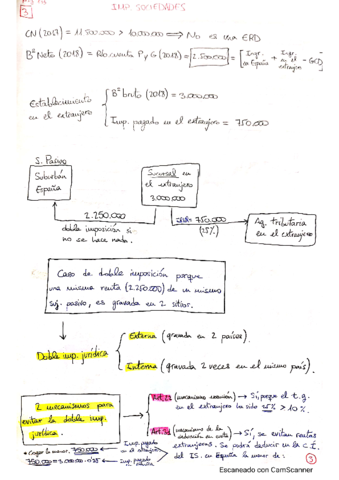 IMP. SOCIEDADES
3
CN (2017) = 11.500.000 > 10.000.000 ⟹ No es una ERD
Bº Neto (2018) = Rdo. cuenta P y G (2018) = 2.500.000 = [Ingr. en España + Ingr. en el extranjero - GD]
Establecimiento en el extranjero
Bº bruto (2018) = 3.000.000
Imp. pagado en el extranjero = 750.000
S. Pasivo
Suburbán
España
Sucursal en
el extranjero
3.000.000
2.250.000
doble imposición si
no se hace nada.
750.000
(25%)
Ag. tributaria
en el extranjero
Caso de doble imposición porque
una misma renta (2.250.000) de un mismo
suj. pasivo, es gravada en 2 sitios.
Doble imp. jurídica
Externa (gravada en 2 países).
Interna (gravada 2 veces en el mismo país).
2 mecanismos para
evitar la doble imp.
jurídica.
Art. 22 (mecanismo exención) → Sí, porque el t.g.
en el extranjero ha sido 25% > 10%.
→ Sí, se evitan rentas
extranjeras. Se podrá deducir en la c.í.
del IS. en España la menor de:
Imp. pagado
en el extranjero
• Coger la menor.
750.000
750.000 = 3.000.000 · 0'25
3
Escaneado con CamScanner